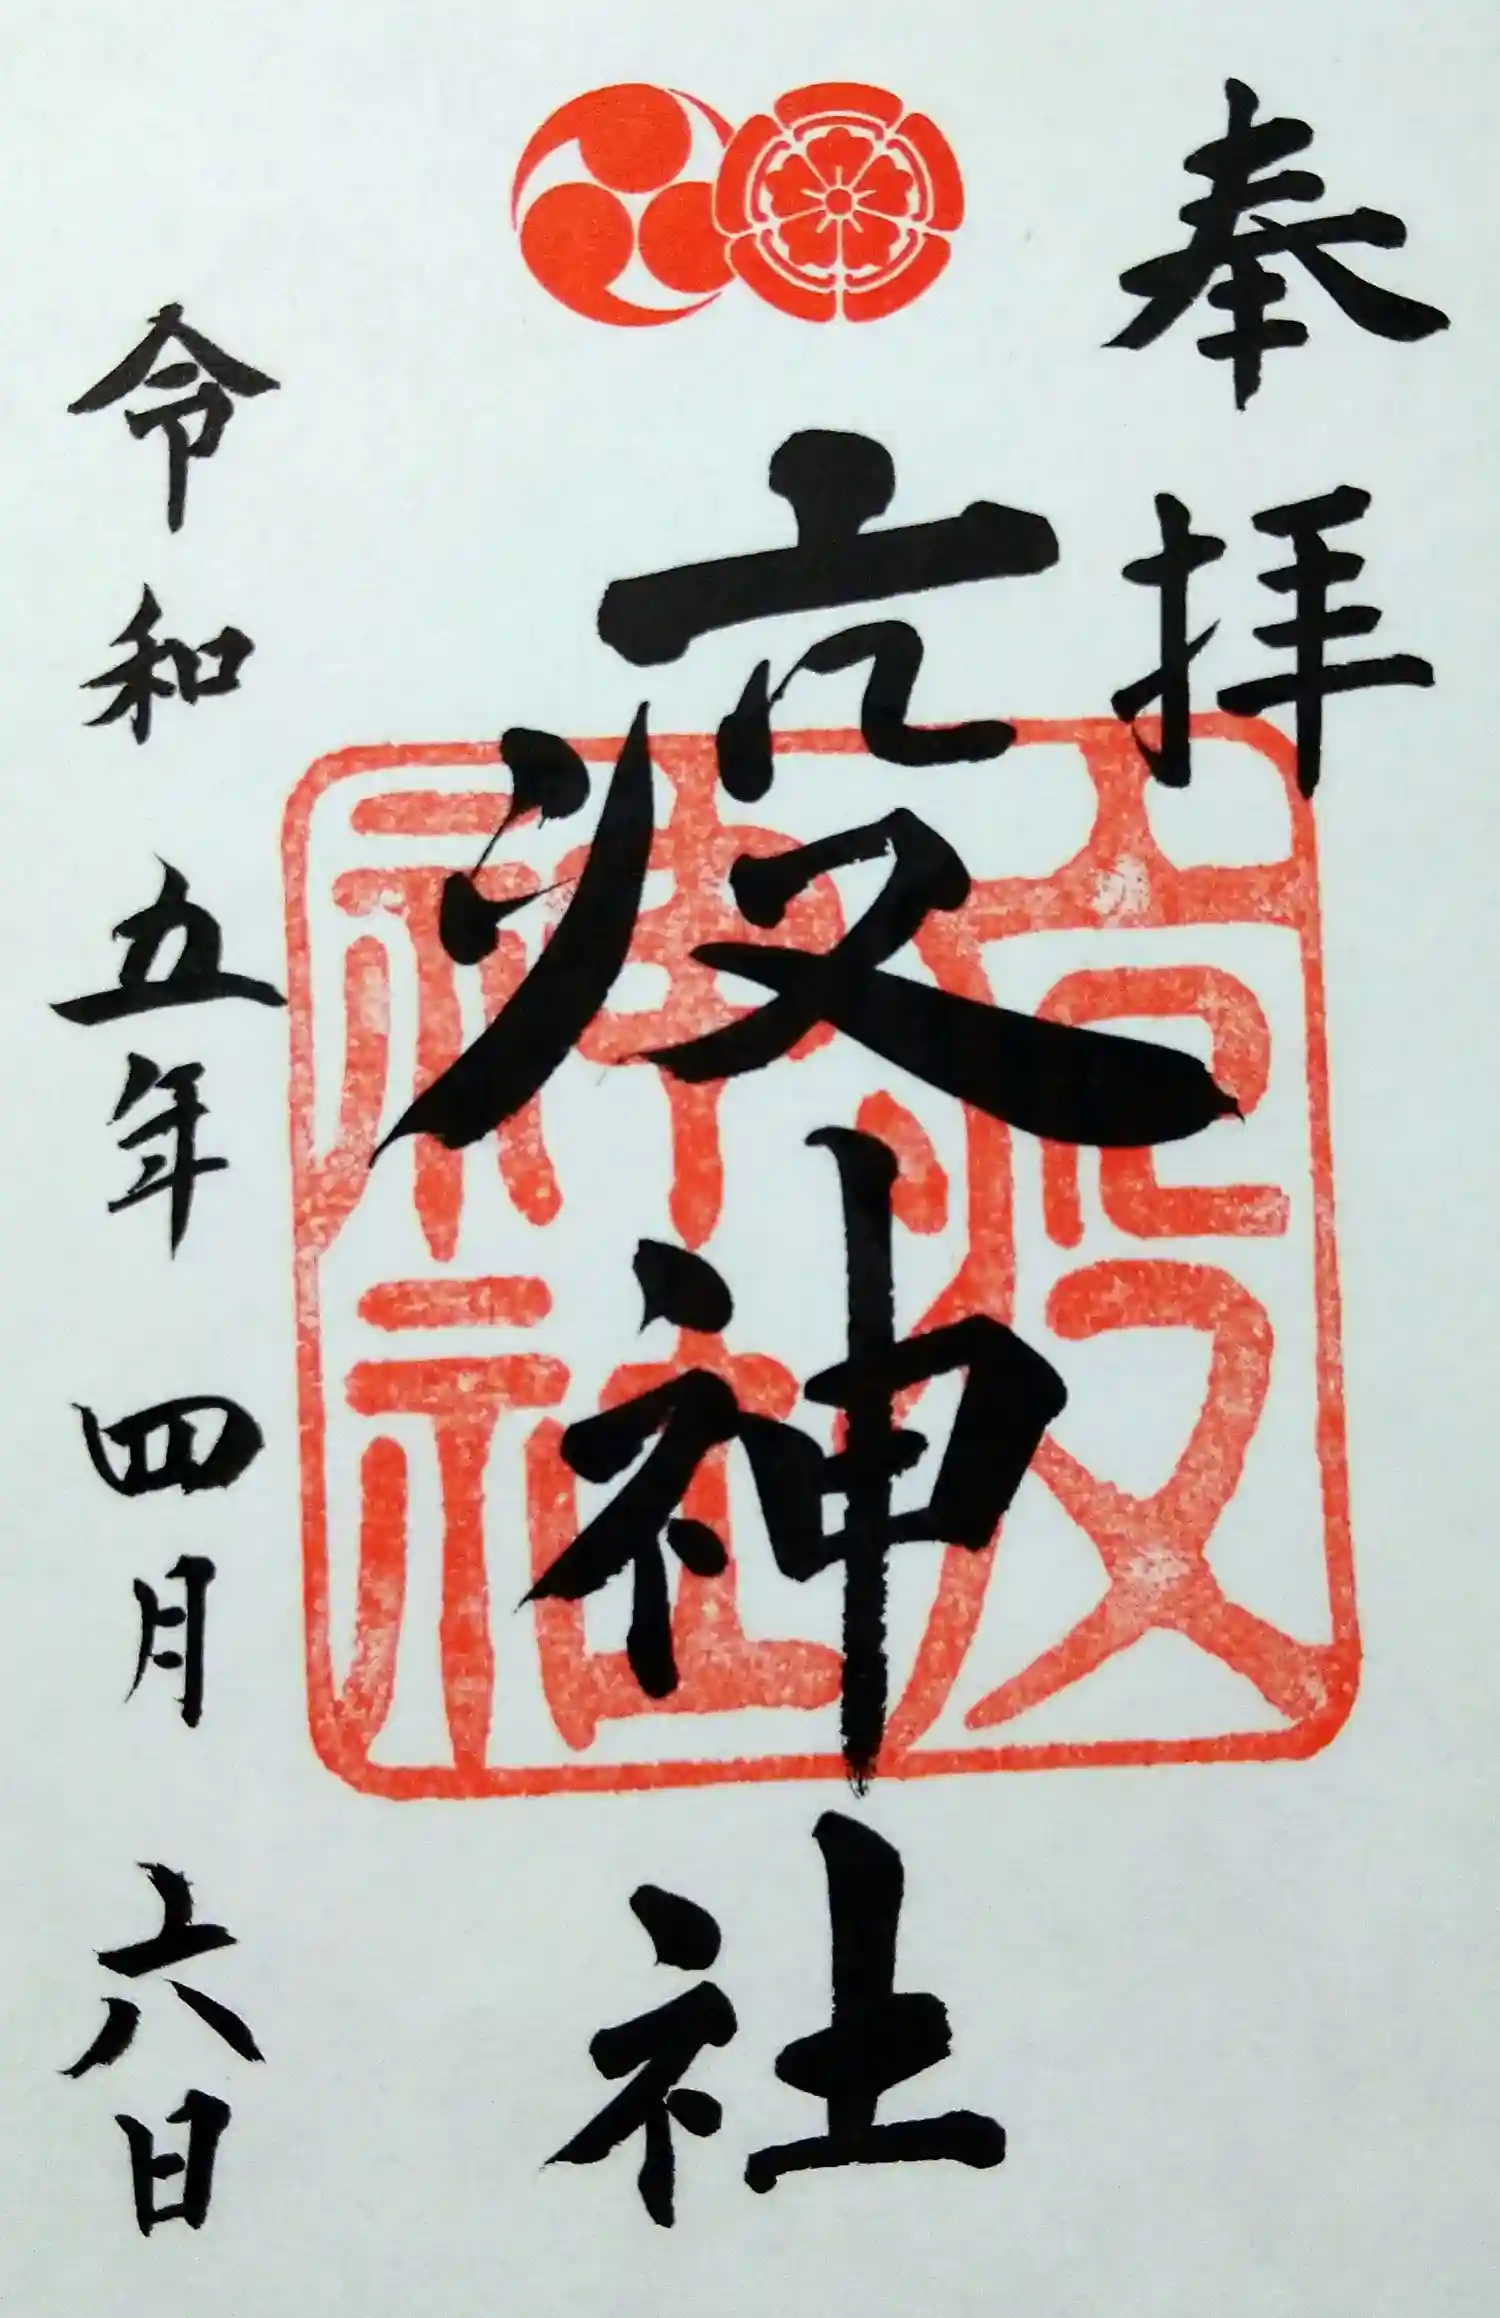 奉拝
疫神社
令和五年四月六日
疫神社